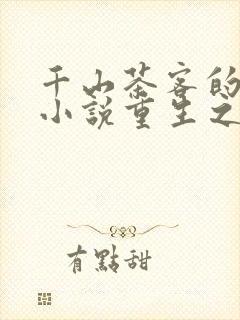 千山茶客的
小說重生之
有點甜